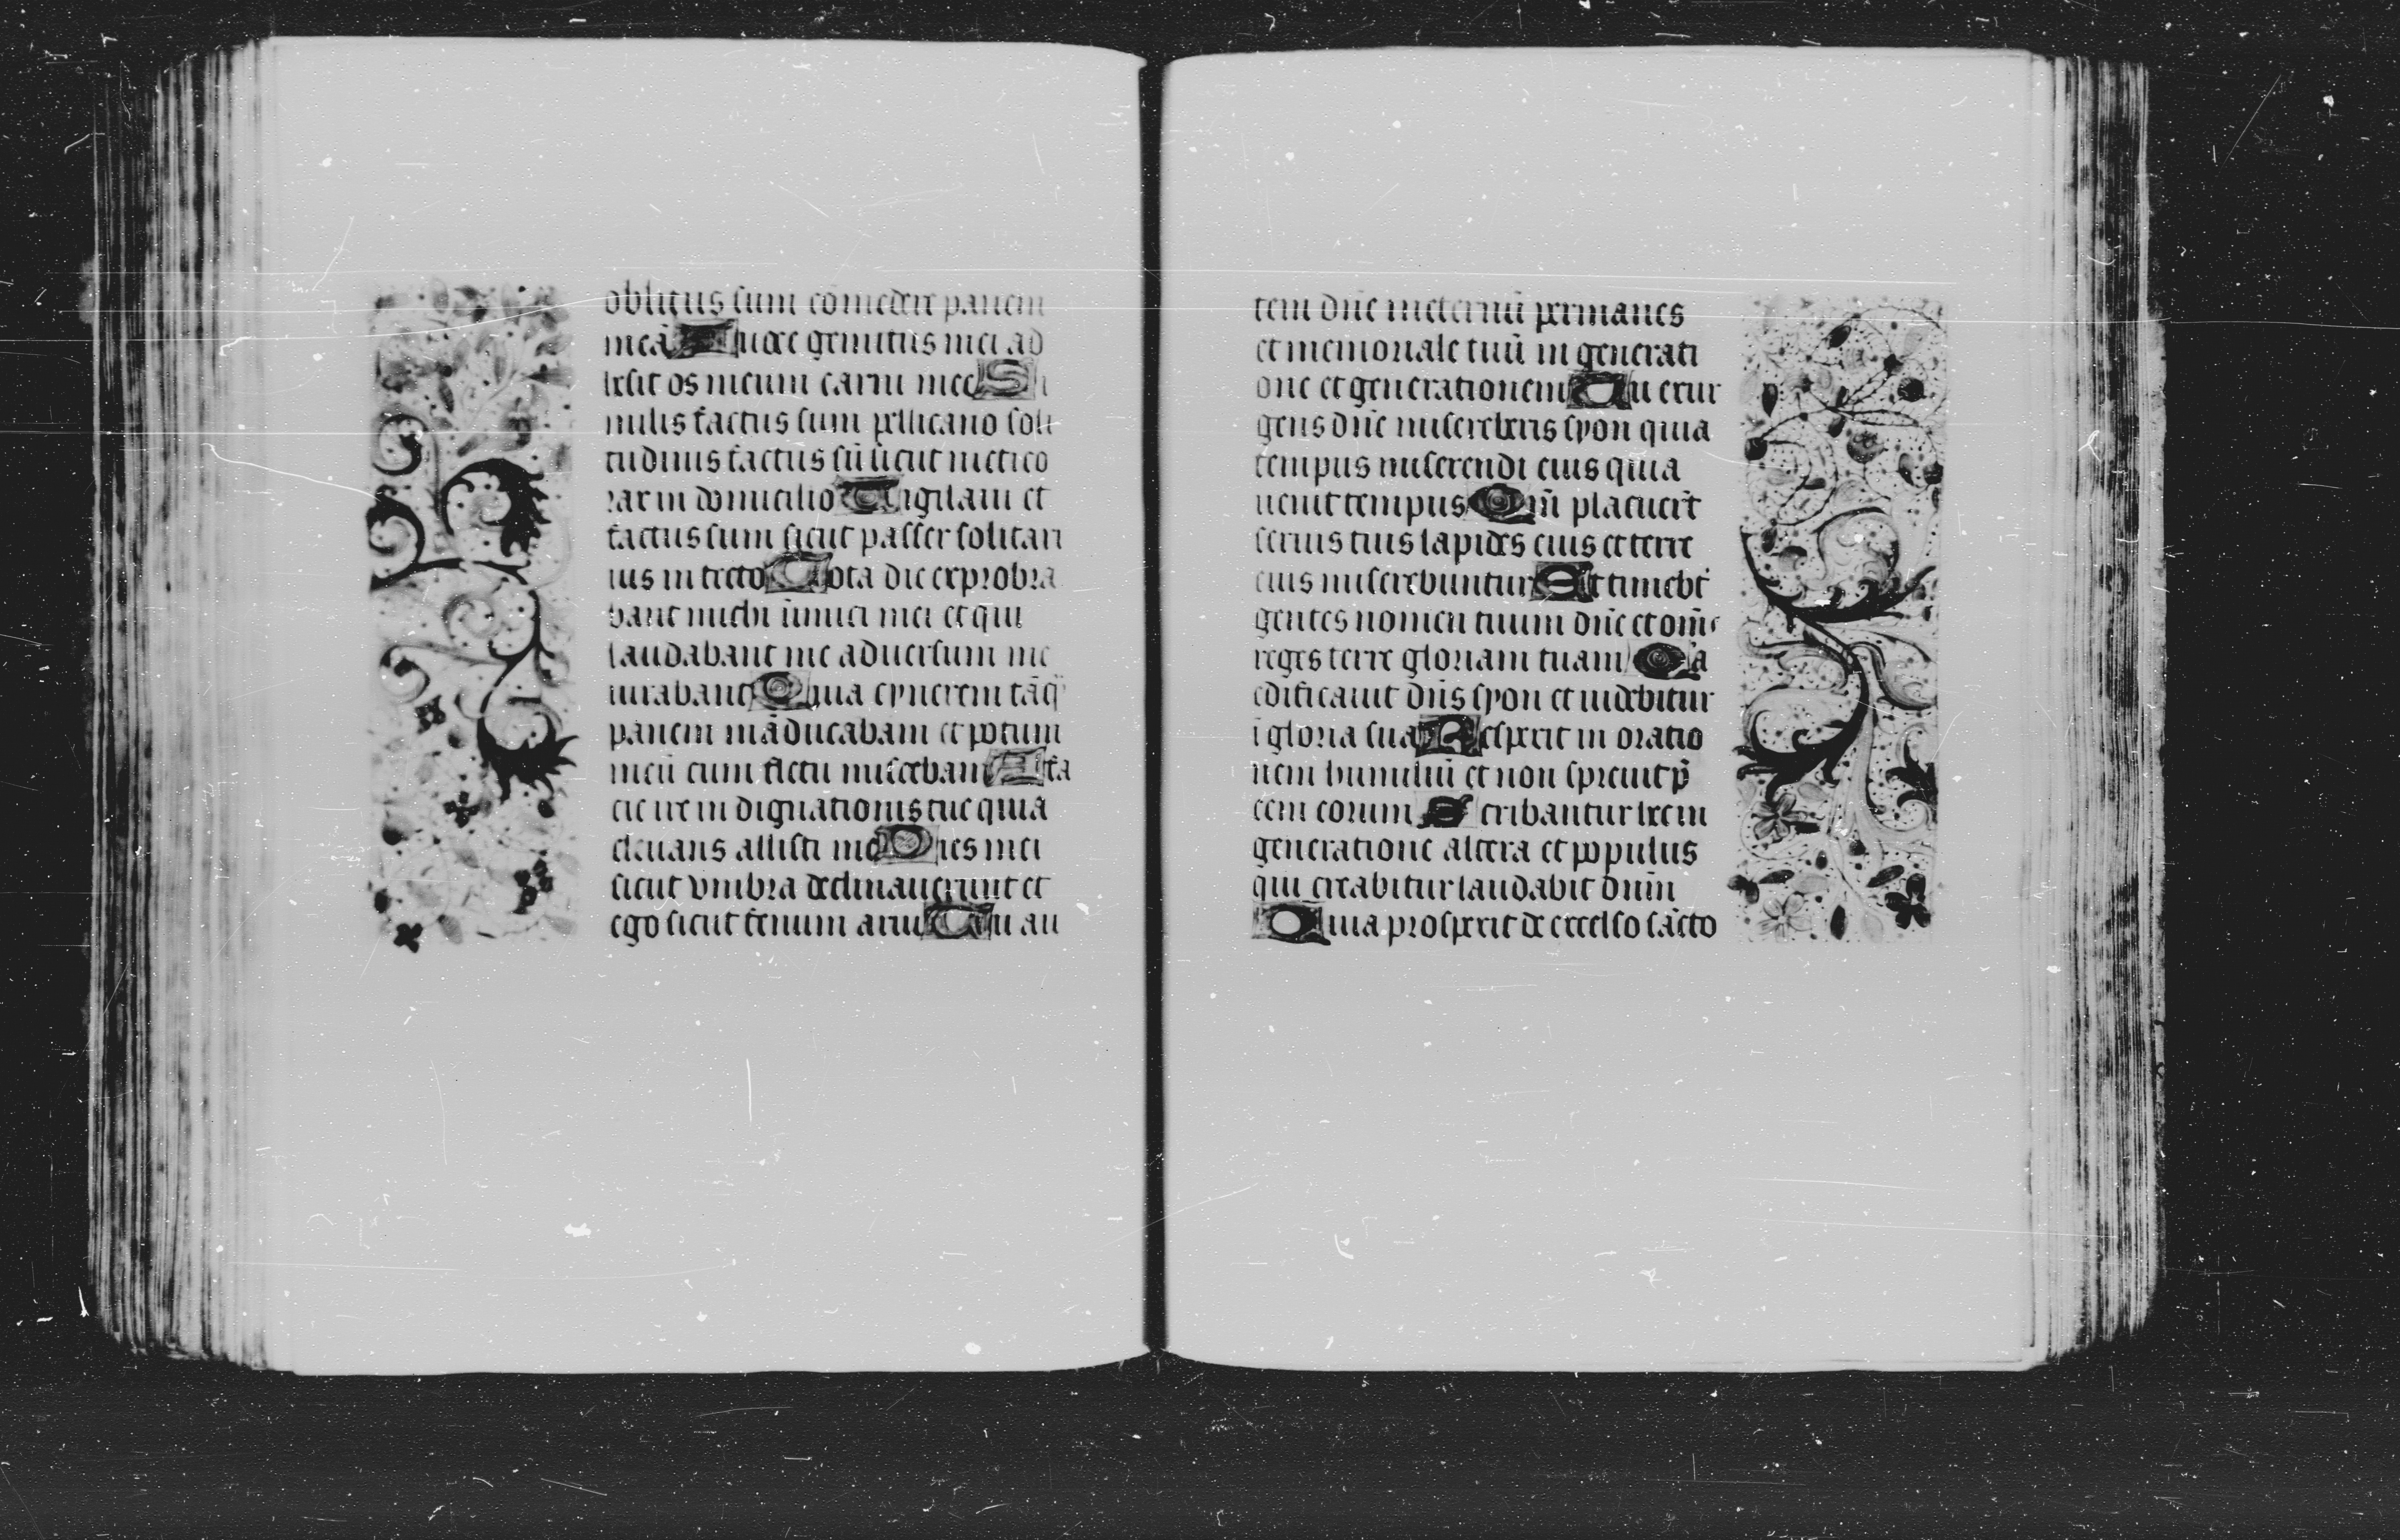 oblitus sum comedere panem
meū A uoce gemitus mei ad
hesit os meum carni mee S i
milis factus sum pellicano soli
tudinis factus sū sicut nictico
rax in domicilio Vigilaui et
factus sum sicut passer solitari
ius in tecto Tota die exprobra
bant michi inimici mei et qui
laudabant me aduersum me
iurabant Quia cynerem tāq̄
panem māducabam et potum
meū cum fletu miscebam A fa
cie ire indignationis tue quia
eleuans allisti me Dies mei
sicut vmbra declinauerunt et
ego sicut fenum arui Tu au
tem dn̄e ineternū permanes
et memoriale tuū in generati
one et generationem Tu exur
gens dn̄e misereberis syon quia
tempus miserendi eius quia
uenit tempus Qm̄ placuer̄t
seruis tuis lapides eius et terre
eius miserebuntur Et timebt̄
gentes nomen tuum dn̄e et om̄s
reges terre gloriam tuam Q̄a
edificauit dn̄s syon et uidebitur
ī gloria sua Respexit in oratio
nem humiliū et non spreuit p̄
cem eorum Scribantur hec in
generatione altera et populus
qui creabitur laudabit dn̄m
Quia prospexit de excelso sācto